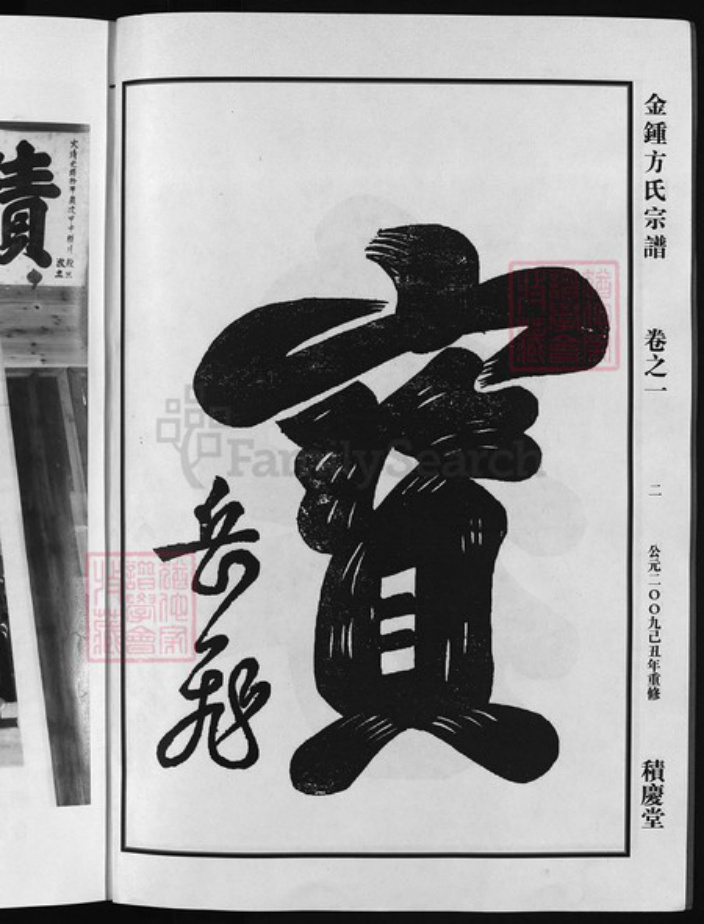 金鍾方氏宗譜
卷之一
二
公元二〇〇九己丑年重修
積慶堂
寶
岳飛
FamilySearch
積